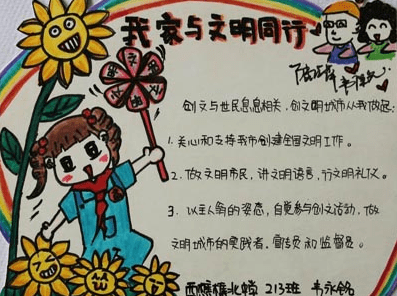 我家与文明同行
文明
创文与世民息息相关，创文明城市从我做起：
1. 关心和支持我市创建全国文明工作。
2. 做文明市民，讲文明语言，行文明礼仪。
3. 以主人翁的姿态，自觉参与创文活动，做
文明城市的实践者，宣传员和监督员。
西樵樵北 213班 韦永铭